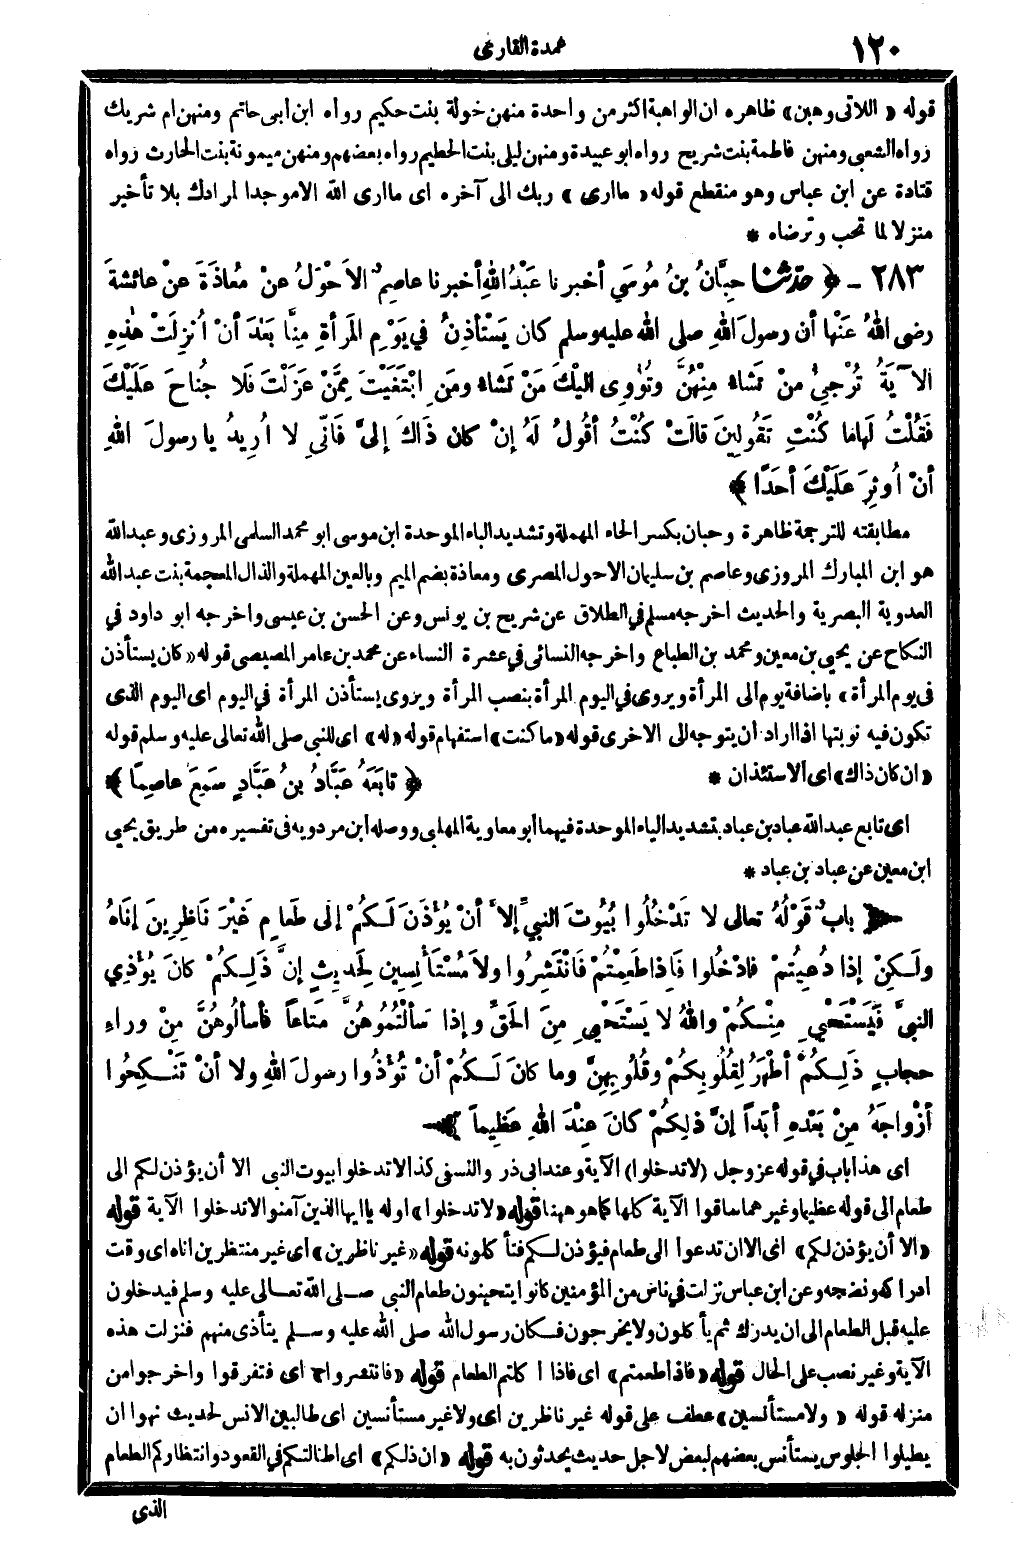 ١٢٠ عمدة القارى
قوله « اللاتى وهبن » ظاهره ان الواهبة اكثر من واحدة منهن خولة بنت حكيم رواه ابن ابى حاتم ومنهن ام شريك
رواه الشعبى ومنهن فاطمة بنت شريح رواه ابو عبيدة ومنهن ليلى بنت الحطيم رواه بعضهم ومنهن ميمونة بنت الحارث رواه
قتادة عن ابن عباس وهو منقطع قوله « مااري » ربك الى آخره اى مااري الله الا موجدا لمرادك بلا تأخير
منزلا لما تحب وترضاه *
٢٨٣ - ﴿ حَدَّثَنَا حِبَّانُ بنُ مُوسَى أخبرنا عَبْدُ اللهِ أخبرنا عاصِمٌ الاَحْوَلُ عنْ مُعاذَةَ عنْ عائشةَ
رضى اللهُ عَنْها أن رسولَ اللهِ صلى الله عليه وسلم كان يَسْتَأْذِنُ في يَوْمِ المَرأةِ مِنَّا بَعْدَ أنْ اُنْزِلَتْ هٰذِهِ
الآيَةُ تُرْجِيُ منْ تَشاءُ مِنْهُنَّ وتُؤْوِى اليْكَ مَنْ تَشاءُ ومَنِ ابْتَغَيْتَ مِمَّنْ عَزَلْتَ فَلا جُناحَ عَلَيْكَ
فَقُلْتُ لَها ما كُنْتِ تَقُولِينَ قالَتْ كُنْتُ أقُولُ لَهُ إنْ كان ذَاكَ إلىَّ فَانِّى لا اُرِيدُ يا رسولَ اللهِ
أنْ اُوثِرَ عَلَيْكَ أحَدًا ﴾
مطابقته للترجمة ظاهرة وحبان بكسر الحاء المهملة وتشديد الباء الموحدة ابن موسى ابو محمد السلمى المروزى وعبدالله
هو ابن المبارك المروزى وعاصم بن سليمان الاحول المصرى ومعاذة بضم الميم وبالعين المهملة والذال المعجمة بنت عبدالله
العدوية البصرية والحديث اخرجه مسلم في الطلاق عن شريح بن يونس وعن الحسن بن عيسى واخرجه ابو داود في
النكاح عن يحيى بن معين ومحمد بن الطباع واخرجه النسائى في عشرة النساء عن محمد بن عامر المصيصى قوله « كان يستأذن
فى يوم المرأة » باضافة يوم الى المرأة ويروى في اليوم المرأة بنصب المرأة ويروى يستأذن المرأة في اليوم اى اليوم الذى
تكون فيه نوبتها اذا اراد أن يتوجه الى الاخرى قوله « ما كنت » استفهام قوله « له » اى للنبى صلى الله تعالى عليه وسلم قوله
« ان كان ذاك » اى الاستئذان * ﴿ تابَعَهُ عَبَّادُ بنُ عَبَّادٍ سَمِعَ عاصِمًا ﴾
اى تابع عبدالله عباد بن عباد بتشديد الباء الموحدة فيهما أبو معاوية المهلبى ووصله ابن مردويه فى تفسيره من طريق يحيى
ابن معين عن عباد بن عباد *
﴿ بابُ قَوْلُهُ تعالى لا تَدْخُلُوا بُيُوتَ النبىِّ إلاَّ أنْ يُؤْذَنَ لَكُمْ إلى طَعامٍ غَيْرَ نَاظِرِينَ إنَاهُ
ولَكِنْ إذا دُعِيتُمْ فادْخُلوا فَاِذا طَعِمْتُمْ فَانْتَشِرُوا ولاَ مُسْتَأْنِسِينَ لِحَدِيثٍ إنَّ ذَلِكُمْ كانَ يُؤْذِي
النبىَّ فَيَسْتَحْيِي مِنْكُمْ واللهُ لا يَسْتَحْيِي مِنَ الحَقِّ وإذا سَألْتُمُوهُنَّ مَتاعاً فأسألُوهُنَّ مِنْ وراءِ
حجابٍ ذَلِكُمْ أطْهَرُ لِقُلُوبِكُمْ وقُلُوبِهِنَّ وما كانَ لَكُمْ أنْ تُؤْذُوا رسولَ اللهِ ولا أنْ تَنْكِحُوا
أزْواجَهُ مِنْ بَعْدِهِ أبَدًا إنَّ ذلِكُمْ كانَ عِنْدَ اللهِ عَظِيماً ﴾
اى هذا باب في قوله عز وجل (لا تدخلوا) الآية وعند ابى ذر والنسفى كذا لا تدخلوا بيوت النبى الا أن يؤذن لكم الى
طعام الى قوله عظيما وغيرهما ساقوا الآية كلها كما هو ههنا قوله « لا تدخلوا » اوله يا ايها الذين آمنوا لا تدخلوا الآية قوله
« الا أن يؤذن لكم » اى الا ان تدعوا الى طعام فيؤذن لكم فتأكلونه قوله « غير ناظرين » اى غير منتظرين اناه اى وقت
ادراكه ونضجه وعن ابن عباس نزلت في ناس من المؤمنين كانوا يتحينون طعام النبى صلى الله تعالى عليه وسلم فيدخلون
عليه قبل الطعام الى ان يدرك ثم يأكلون ولا يخرجون فكان رسول الله صلى الله عليه وسلم يتأذى منهم فنزلت هذه
الآية وغير نصب على الحال قوله « فاذا طعمتم » اى فاذا اكلتم الطعام قوله « فانتشروا » اى فتفرقوا واخرجوا من
منزله قوله « ولا مستأنسين » عطف على قوله غير ناظرين اى ولا غير مستأنسين اى طالبين الانس لحديث نهوا ان
يطيلوا الجلوس يستأنس بعضهم لبعض لاجل حديث يحدثون به قوله « ان ذلكم » اى اطالتكم في القعود وانتظاركم الطعام
الذى